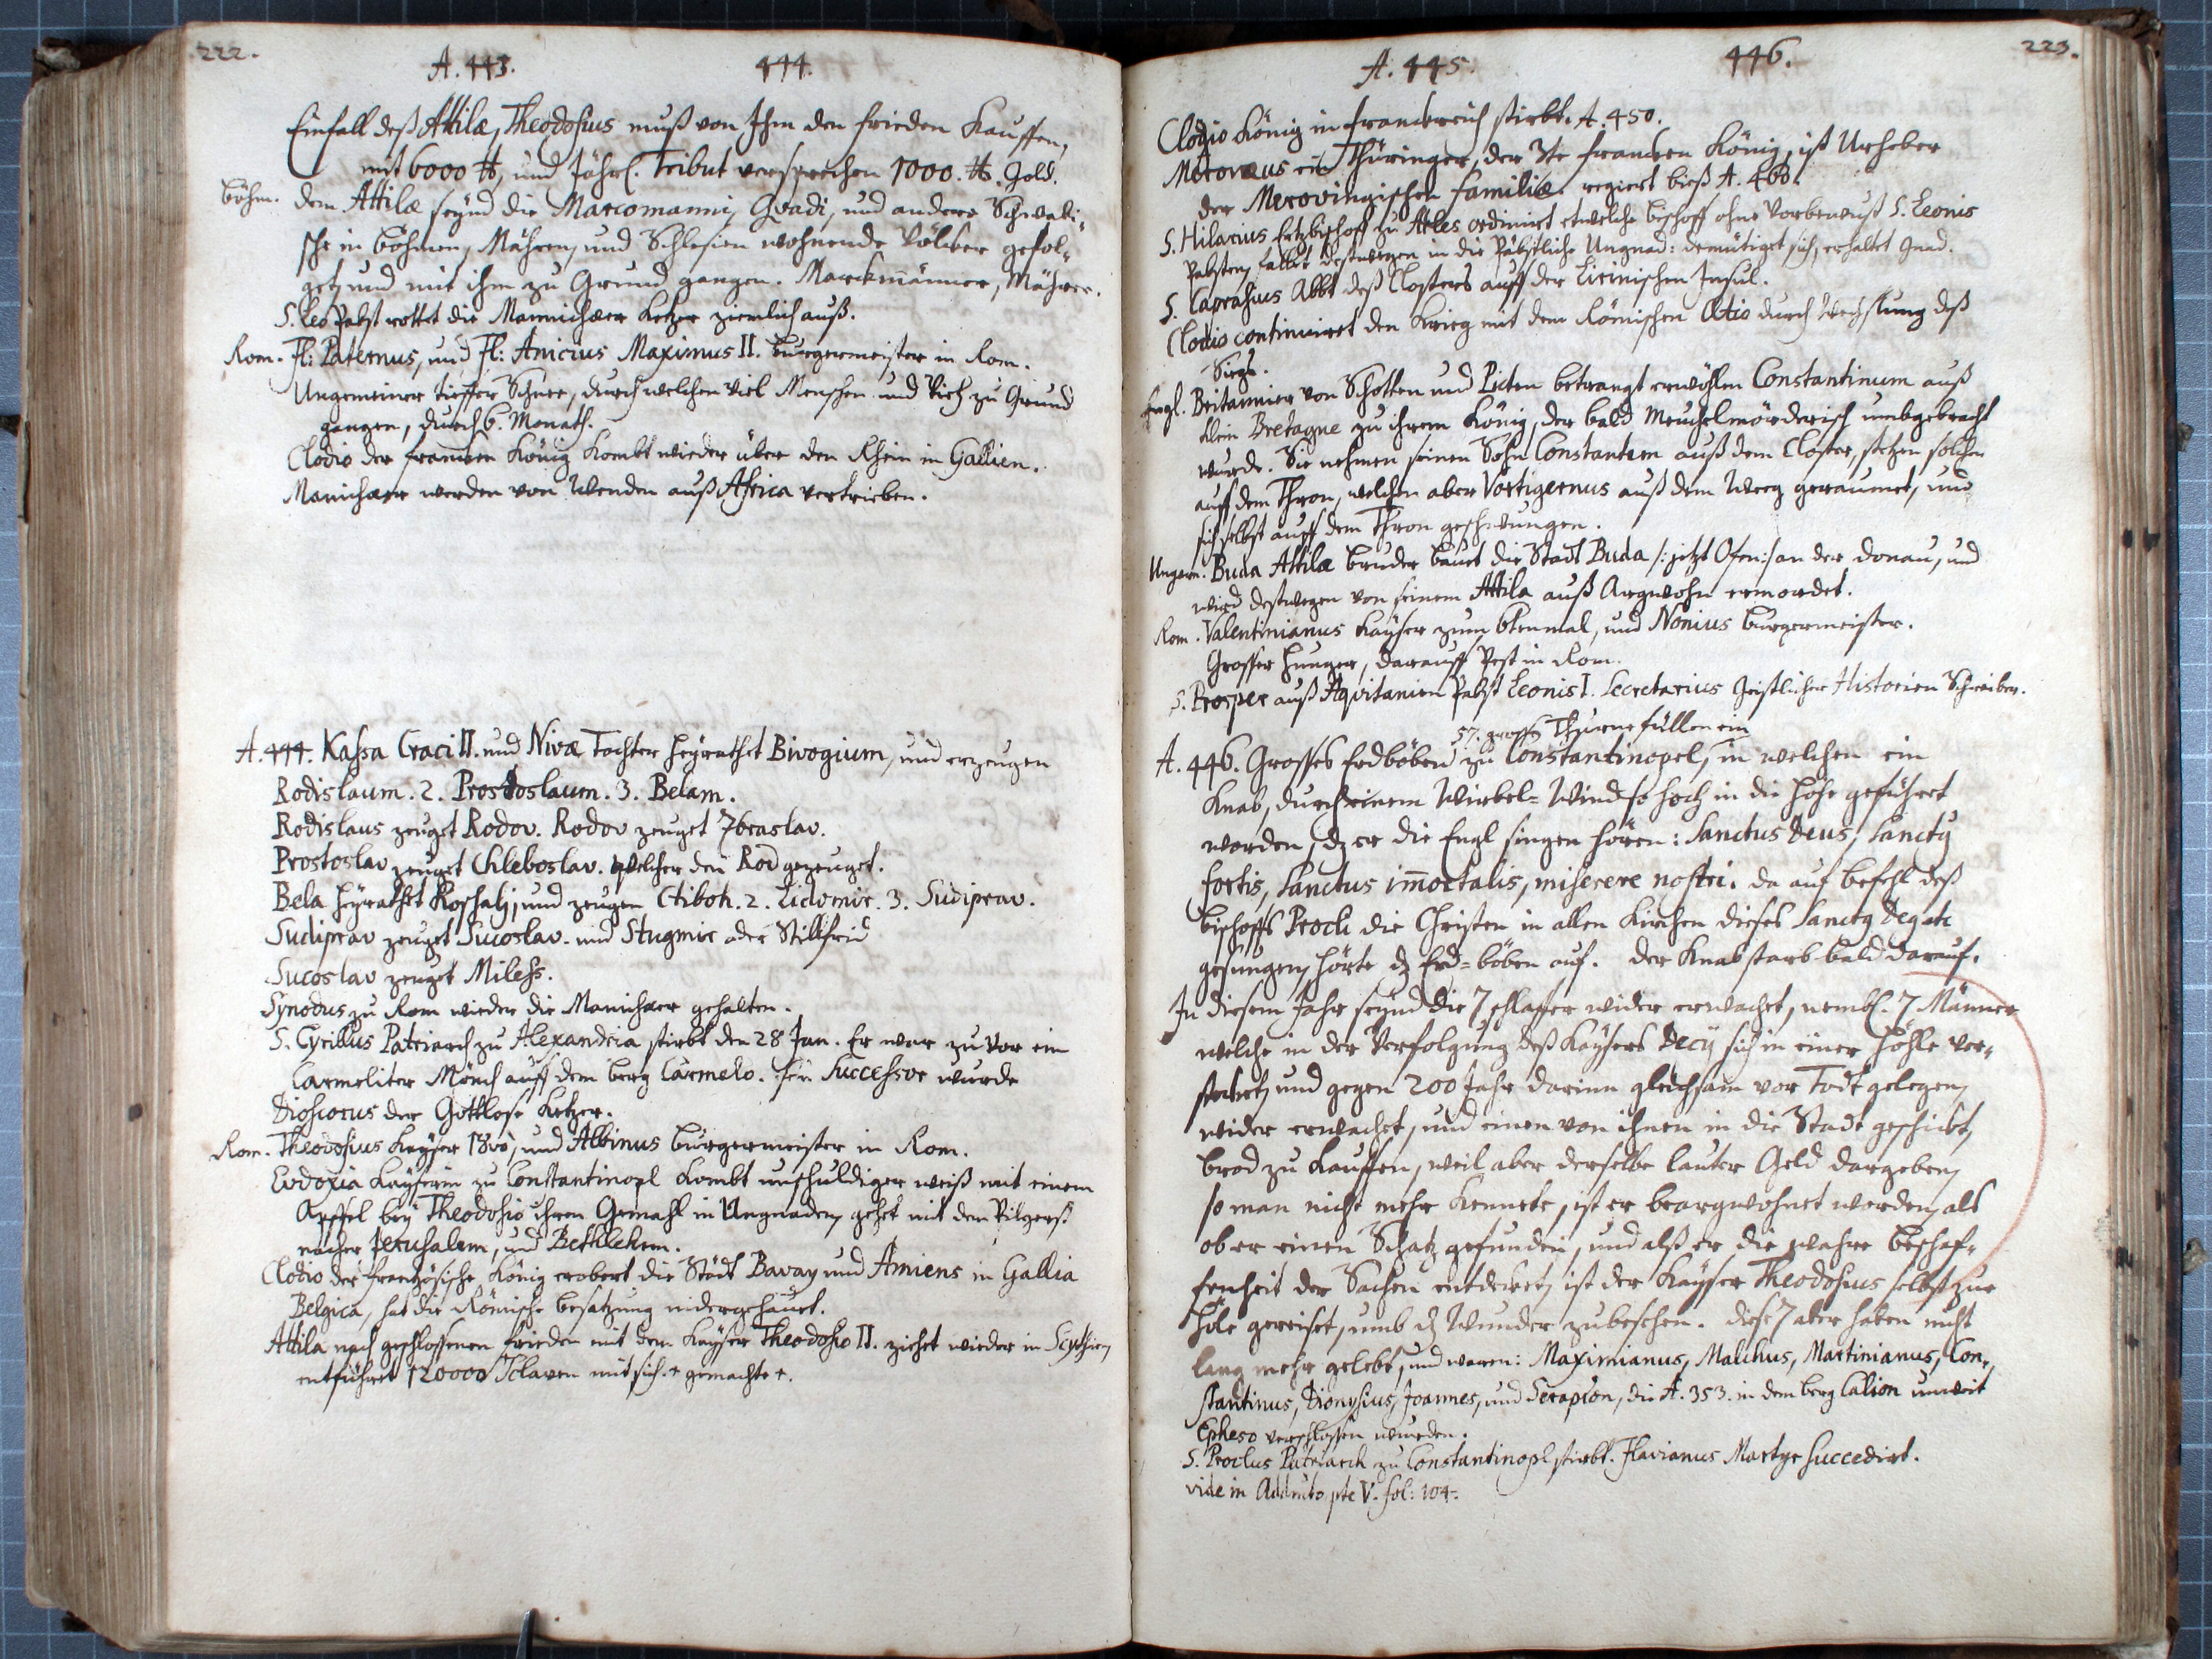 222.
A. 443. 444.
Einfall deß Attilæ, Theodosius muß von Ihm den frieden Kauffen,
mit 6000 ℔, und Jährl. Tribut versprechen 1000. ℔. Gold.
Böhm. dem Attilæ seynd die Marcomanni, Qvadi, und andere Schwabi-
sche in Böhmen, Mähren, und Schlesien wohnende Völcker gefol-
get, und mit ihm zu Grund gangen. Marckmänner, Mährer.
S. Leo Pabst rottet die Mannichæer Ketzer ziemlich auß.
Rom. Fl: Paternus, und Fl: Anicius Maximus II. Burgermeister in Rom.
Ungemeiner tieffer Schnee, durch welchen viel Menschen und Vieh zu Grund
gangen, durch 6. Monath.
Clodio der francken König Kombt wieder über den Rhein in Gallien.
Manichæer werden von Wenden auß Africa vertrieben.
A. 444. Kaßa Craci II. und Nivæ Tochter heyrathet Bivogium, und erzeugen
Rodislaum. 2. Prostoslaum. 3. Belam.
Rodislaus zeuget Rodov. Rodov zeuget Zbraslav.
Prostoslav zeuget Chleboslav. welcher den Rod gezeuget.
Bela heyrathet Roschatj, und zeugen Ctiboh. 2. Lidomir. 3. Sudiprav.
Sudiprav zeuget Sucoslav. und Stugmir oder Stillfrid
Sucoslav zeuget Miless.
Synodus zu Rom wieder die Manichæer gehalten.
S. Cyrillus Patriarch zu Alexandria stirbt den 28 Jan. Er war zu vor ein
Carmeliter Mönch auff dem berg Carmelo. sein Successor wurde
Dioscorus der Gottlose Ketzer.
Rom. Theodosius Kayser 18vo, und Albinus Burgermeister in Rom.
Eudoxia Kayserin zu Constantinopl Kombt unschuldiger weiß mit einem
Apffel bey Theodosio ihren Gemahl in Ungnaden, gehet mit den Pilgerß
nacher Jerusalem, und Bethlehem.
Clodio der französische König erobert die Städt Bavay und Amiens in Gallia
Belgica, hat die Römische besatzung nidergehauet.
Attila nach geschlossenen frieden mit dem Kayser Theodosio II. ziehet wieder in Scythien,
entführet 120000 Sclaven mit sich. + gemachte +.
223.
A. 445. 446.
Clodio König in franckreich stirbt. A. 450.
Meroveus ein Thüringer, der 3te francken König, ist Urheber
der Merovingischen familiæ. regiert bieß A. 460.
S. Hilarius Ertzbischoff zu Arles ordiniret etwelche bischoff ohne Vorbewust S. Leonis
Pabsten, fallet destwegen in die Päbstliche Ungnad: demütiget sich, erhaltet Gnad.
S. Caprasius Abbt deß Closters auff der Lirinischen Insul.
Clodio continuiret den Krieg mit dem Römischen Aëtio durch wechslung deß
Siegs.
Engl. Britannier von Schotten und Picten betrangt erwöhlen Constantinum auß
klein Bretagne zu ihrem König, der bald Meuchelmörderisch umbgebracht
wurde. Sie nehmen seinen Sohn Constantem auß dem Closter, setzen solchen
auff dem Thron, welchen aber Vortigernus auß dem Weeg geraumet, und
sich selbst auff dem Thron geschwungen.
Ungarn. Buda Attilæ bruder bauet die Stadt Buda /: jetzt Ofen :/ an der Donau, und
wird destwegen von seinem Attila auß Argwohn ermordet.
Rom. Valentinianus Kayser zum 6tenmal, und Nonius Burgermeister.
Grosser Hunger, darauff Pest in Rom.
S. Prosper auß Aqvitanien Pabst Leonis I. Secretarius Geistlicher Historien Schreiber.
57. grosse Thürne füllen ein
A. 446. Grosses Erdböben zu Constantinopel, in welchen ein
Knab, durch einem Wirbel=Wind so hoch in die Höhe geführt
worden, dz er die Engl singen hören: Sanctus Deus, Sanctus
fortis, Sanctus immortalis, miserere nostri. da auf befehl deß
Bischoffs Procli die Christen in allen Kirchen dieses Sanctus
gesungen, hörte dz Erd=böben auf. Der Knab starb bald darauf.
In diesem Jahr seynd die 7 schlaffer wider erwachet, nembl. 7 Männer
welche in der Verfolgung deß Kaysers Decij sich in einer Höhle ver-
steckt, und gegen 200 Jahr darinn gleichsam vor Todt gelegen,
wider erwachet, und einen von ihnen in die Stadt geschickt,
brod zu Kauffen, weil aber derselbe lauter Geld dargeben,
so man nicht mehr Kennete, ist er beargwohnet worden, als
ob er einen Schatz gefunden, und alß er die wahre beschaf-
fenheit der Sachen entdecket, ist der Kayser Theodosius selbst zur
Höle gereiset, umb dz Wunder zubesehen. Diese 7 aber haben nicht
lang mehr gelebt, und waren: Maximianus, Malchus, Martinianus, Con-
stantinus, Dionysius, Joannes, und Serapion, die A. 353. in dem berg Calion unweit
Epheso verschlossen wurden.
S. Proclus Patriarch zu Constantinopl stirbt. Flavianus Martyr succedirt.
vide in pte V. fol: 104.